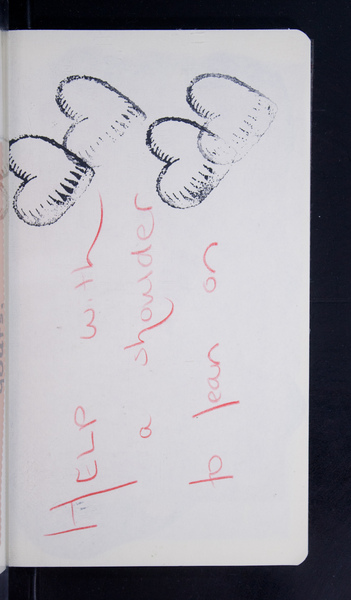 HELP with
a shoulder
to lean on